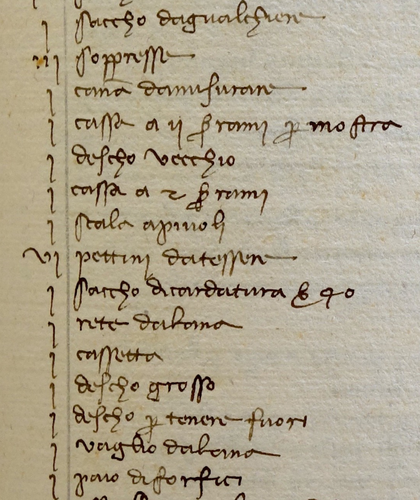 j saccho dagualchiere
iij soppresse
j cana damisurare
j cassa a ij serrami p mostra
j descho vecchio
j cassa a 2 serrami
j scala apiuolj
vj pettini datessere
j saccho dicardatura lb 40
j rete dalana
j cassetta
j descho grosso
j descho p tenere fuori
j vaglio dalana
j paio diforfici